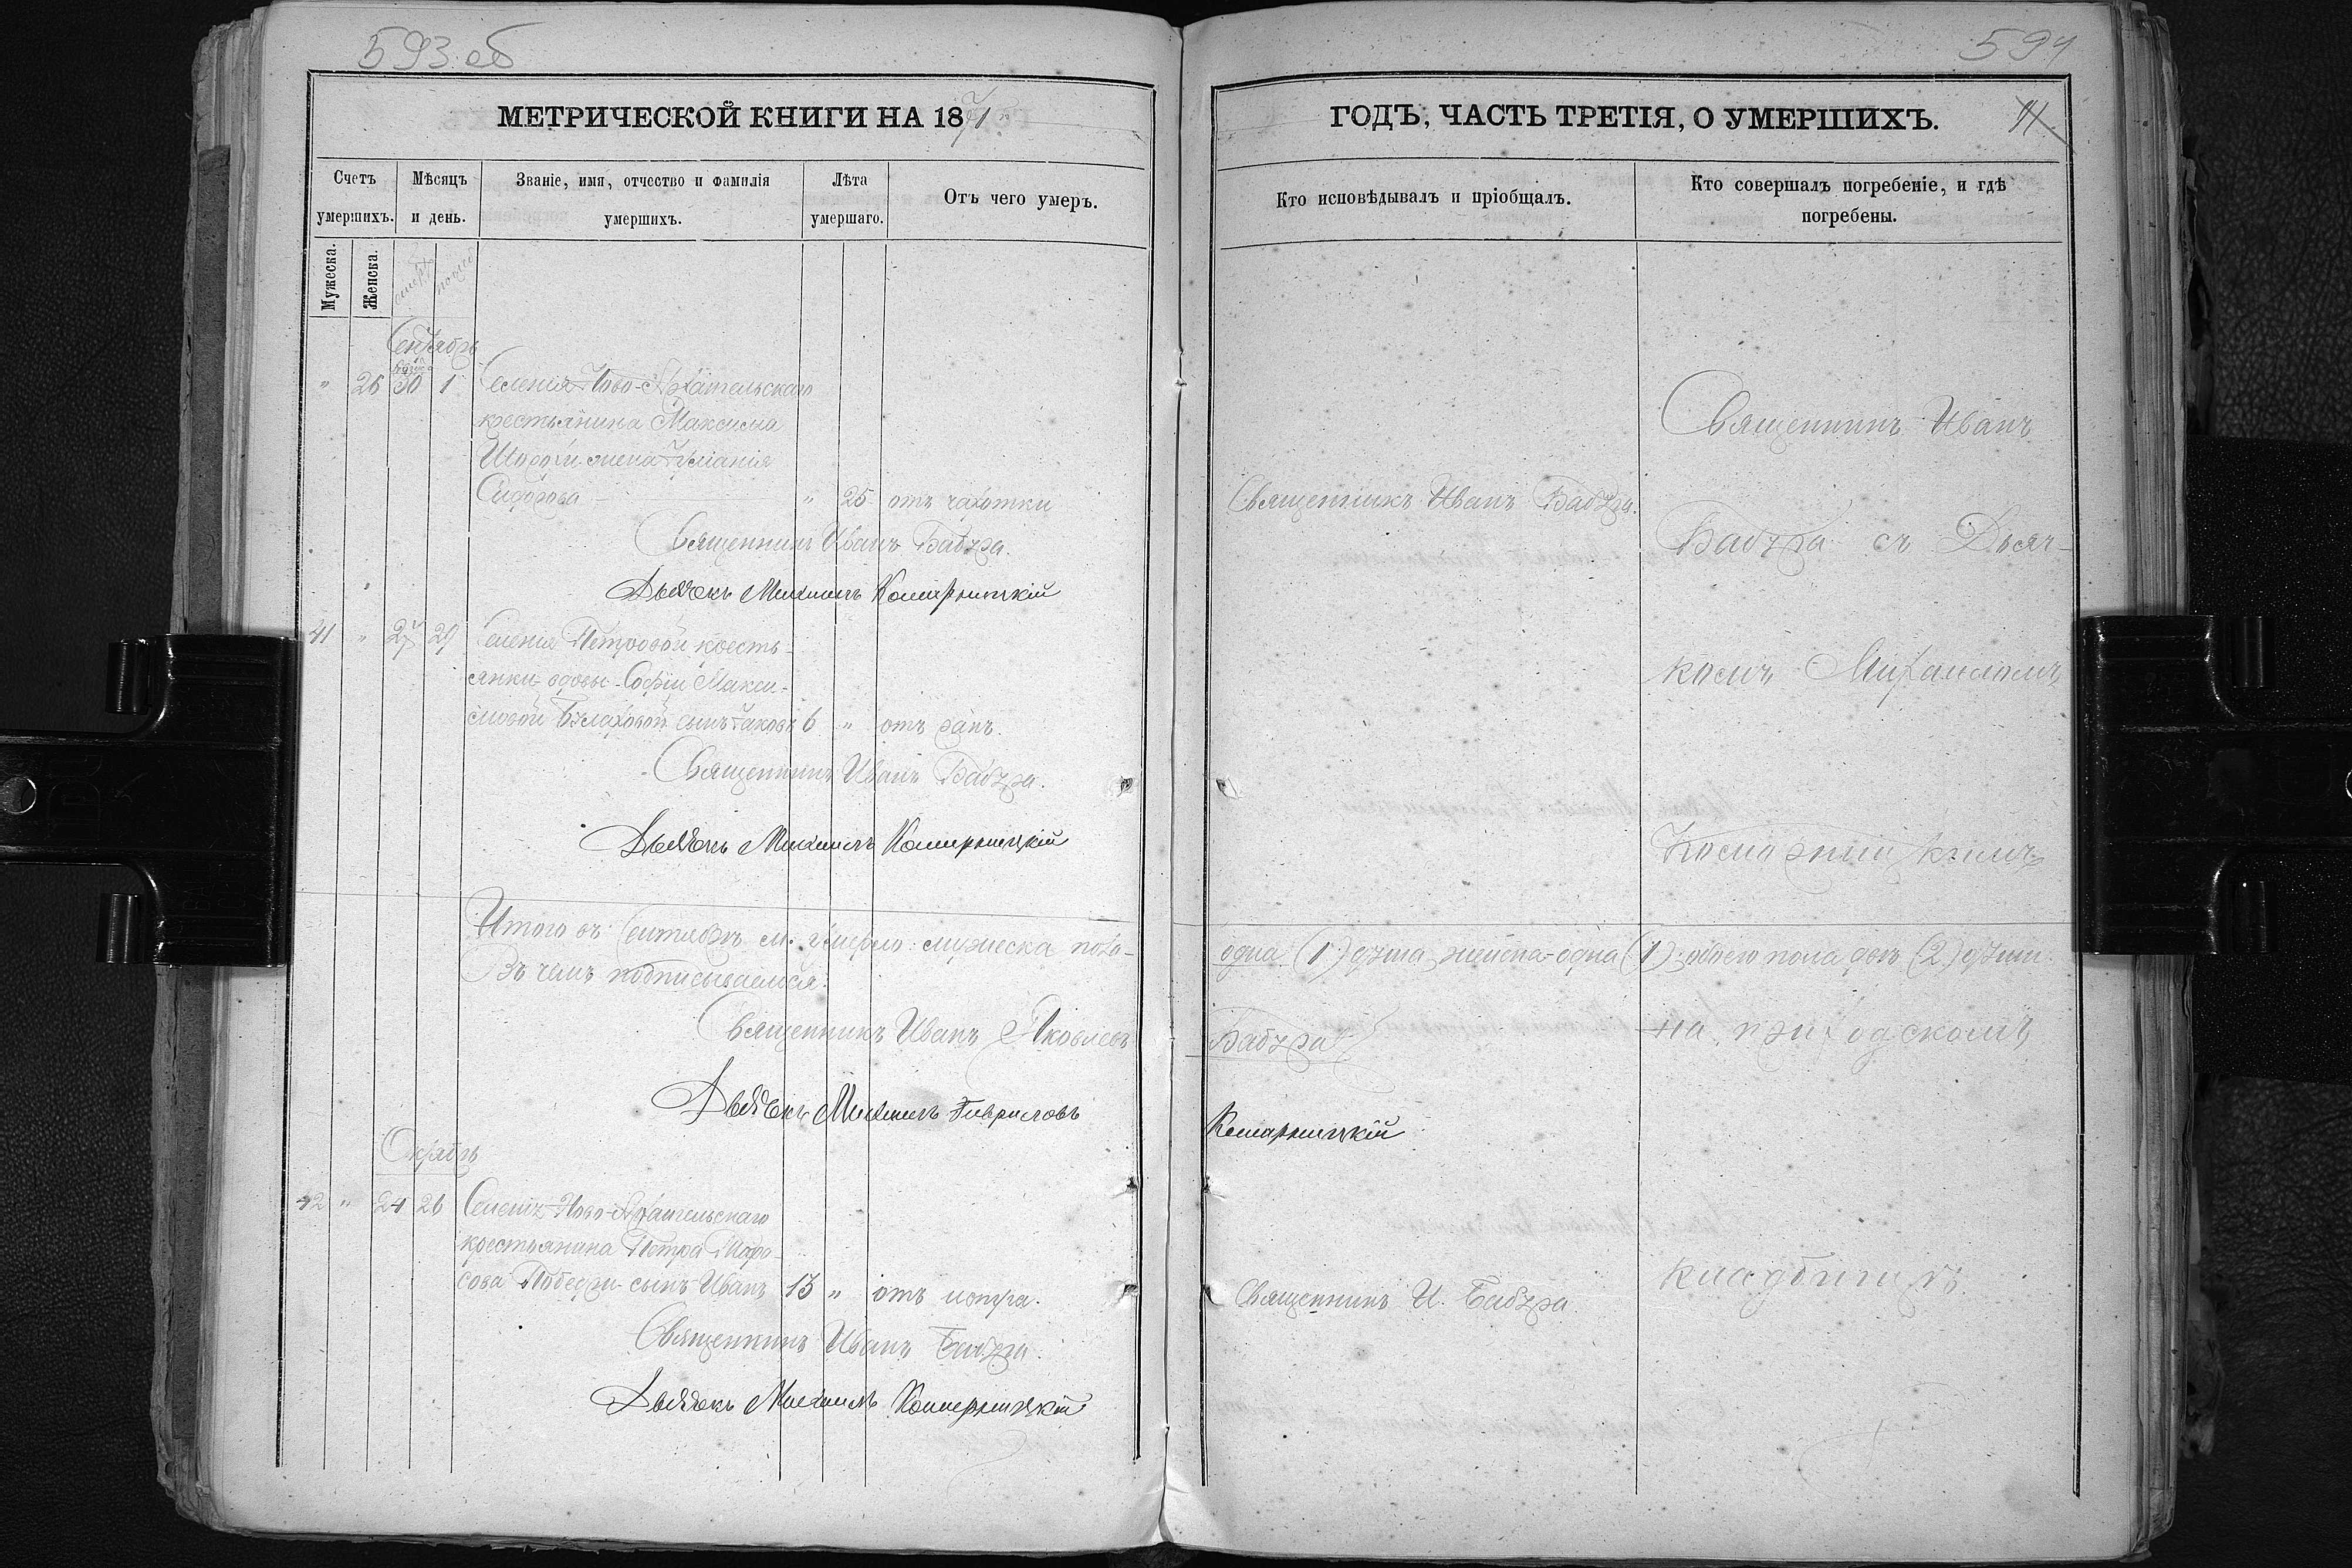 593 об
МЕТРИЧЕСКОЙ КНИГИ НА 1871
Счетъ умершихъ.
Мѣсяцъ и день.
Званіе, имя, отчество и фамилія умершихъ.
Лѣта умершаго.
Отъ чего умеръ.
Мужеска.
Женска.
Сентябрь
" 26 30 1 Селенія Ново-Архангельскаго
крестьянина Максима
жена
Сидорова " 25 отъ чахотки
Священникъ Иванъ Бабура.
Дьячокъ Михаилъ Комарницкій
41 " 27 29 Селенія Петровой кресть-
янки вдовы Софіи Макси-
мовой Булаховой сынъ Іаковъ 6 " отъ ранъ.
Священникъ Иванъ Бабура.
Дьячокъ Михаилъ Комарницкій
Итого въ Сентябрѣ м. умерло: мужеска пола-
Въ чемъ подписываемся:
Священникъ Иванъ Яковлевъ
Дьячокъ Михаилъ Гавриловъ
Октябрь
42 " 24 26 Селенія Ново-Архангельскаго
крестьянина Петра
сынъ Иванъ 13 " отъ
Священникъ Иванъ Бабура.
Дьячокъ Михаилъ Комарницкій
594
ГОДЪ, ЧАСТЬ ТРЕТІЯ, О УМЕРШИХЪ.
Кто исповѣдывалъ и пріобщалъ.
Кто совершалъ погребеніе, и гдѣ
погребены.
Священникъ Иванъ
Священникъ Иванъ Бабура.
Бабура съ Дьяч-
комъ Михаиломъ
Комарницкимъ
одна (1) душа, женска-одна (1); обоего пола двѣ (2) души.
Бабура
на приходскомъ
Комарницкій
кладбищѣ
Священникъ И. Бабура.